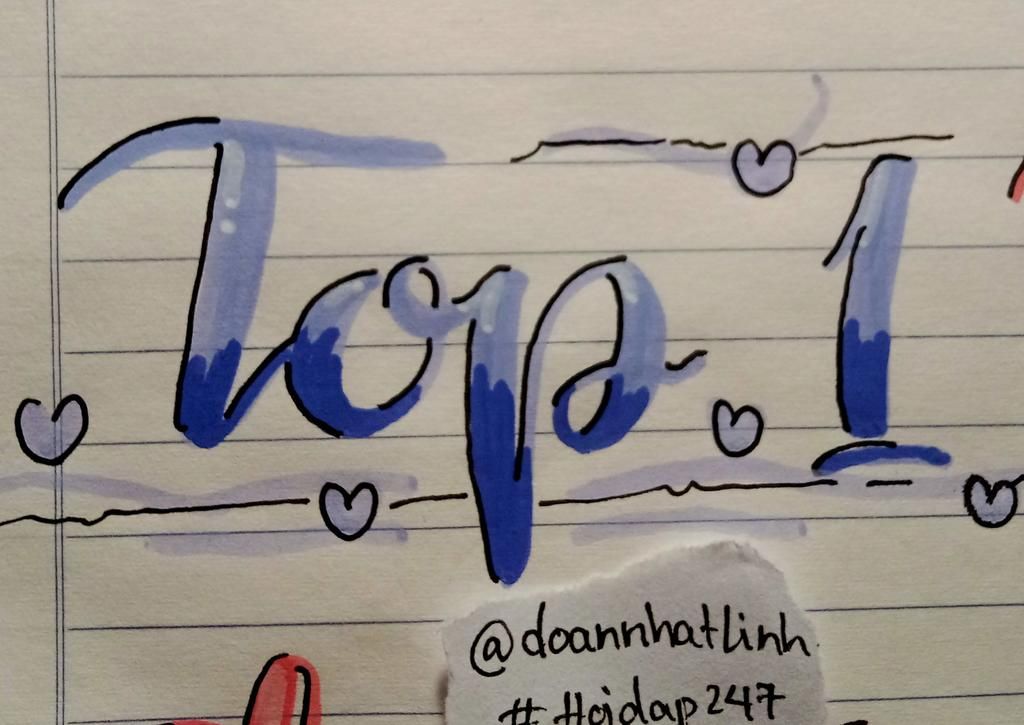 Top 1
@doannhatlinh
#Hoidap247